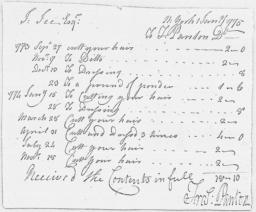 J. Jee Esqr. N York Janry 1775
To T. Pandon Dr
1773 Sepr 29 cutt your hair 2 0
Novr 9 To Ditto 2
Decr 10 To Dressing 8
23 To a pound of powder 1 6
1774 Janry 15 To Cutting your hair 2
28 To Dressing 8
March 28 Cutt your hair 2
April 21 Cutt and dressd 2 times 4 0
July 24 Cutt your hair 2
Novr 18 Cutt your hair 2
Received the Contents in full 18 10